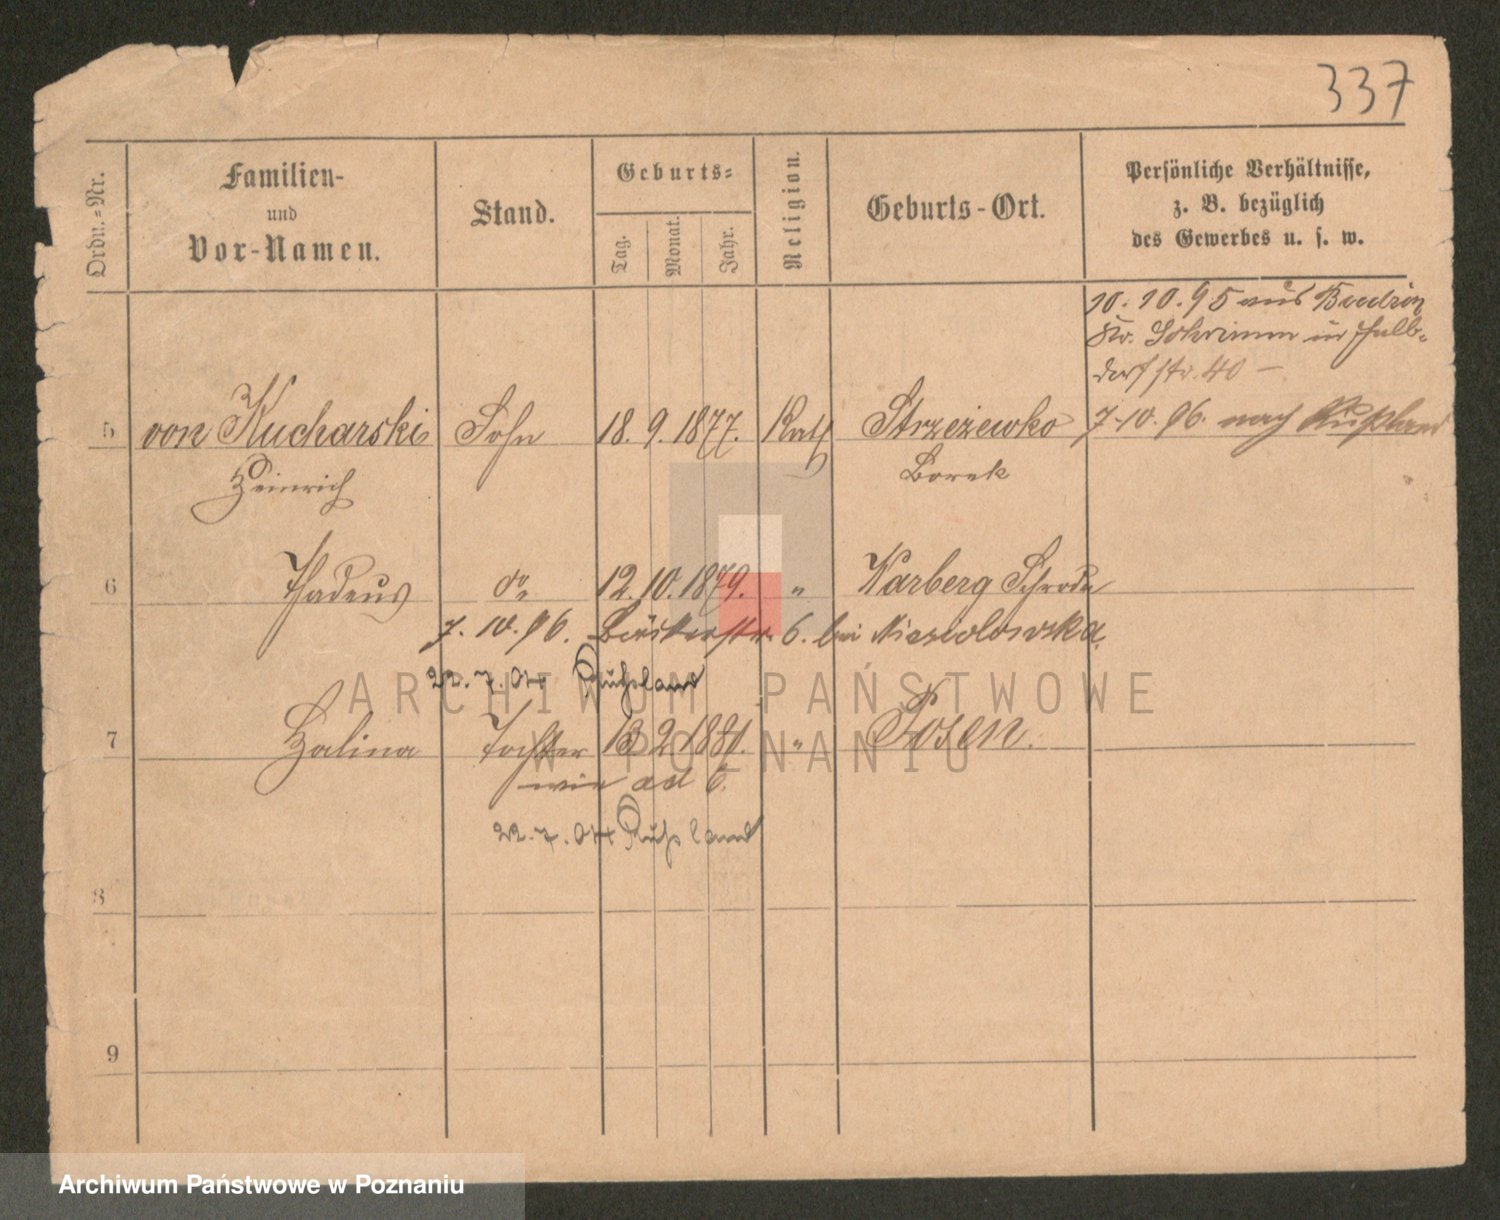 337
Ordn.=Nr.
Familien-
und
Vor-Namen.
Stand.
Geburts=
Tag.
Monat.
Jahr.
Religion.
Geburts-Ort.
Persönliche Verhältnisse,
z. B. bezüglich
des Gewerbes u. s. w.
10. 10. 95 aus
Kr. Schrimm in Halb-
dorfstr. 40 –
5 von Kucharski Sohn 18. 9. 1877. Kath Strzeżewko 7. 10. 96. nach Rußland
Heinrich Borek
6 Thadeus do 12. 10. 1879. " Karberg Schroda
7. 10. 96. Bäckerstr. 6. bei Niesiolowska.
22. 7. 04 Russland
7 Halina Tochter 13 2 1881. " Posen.
wie ad 6.
22. 7. 04 Russland
8
9
ARCHIWUM PAŃSTWOWE
W POZNANIU
Archiwum Państwowe w Poznaniu